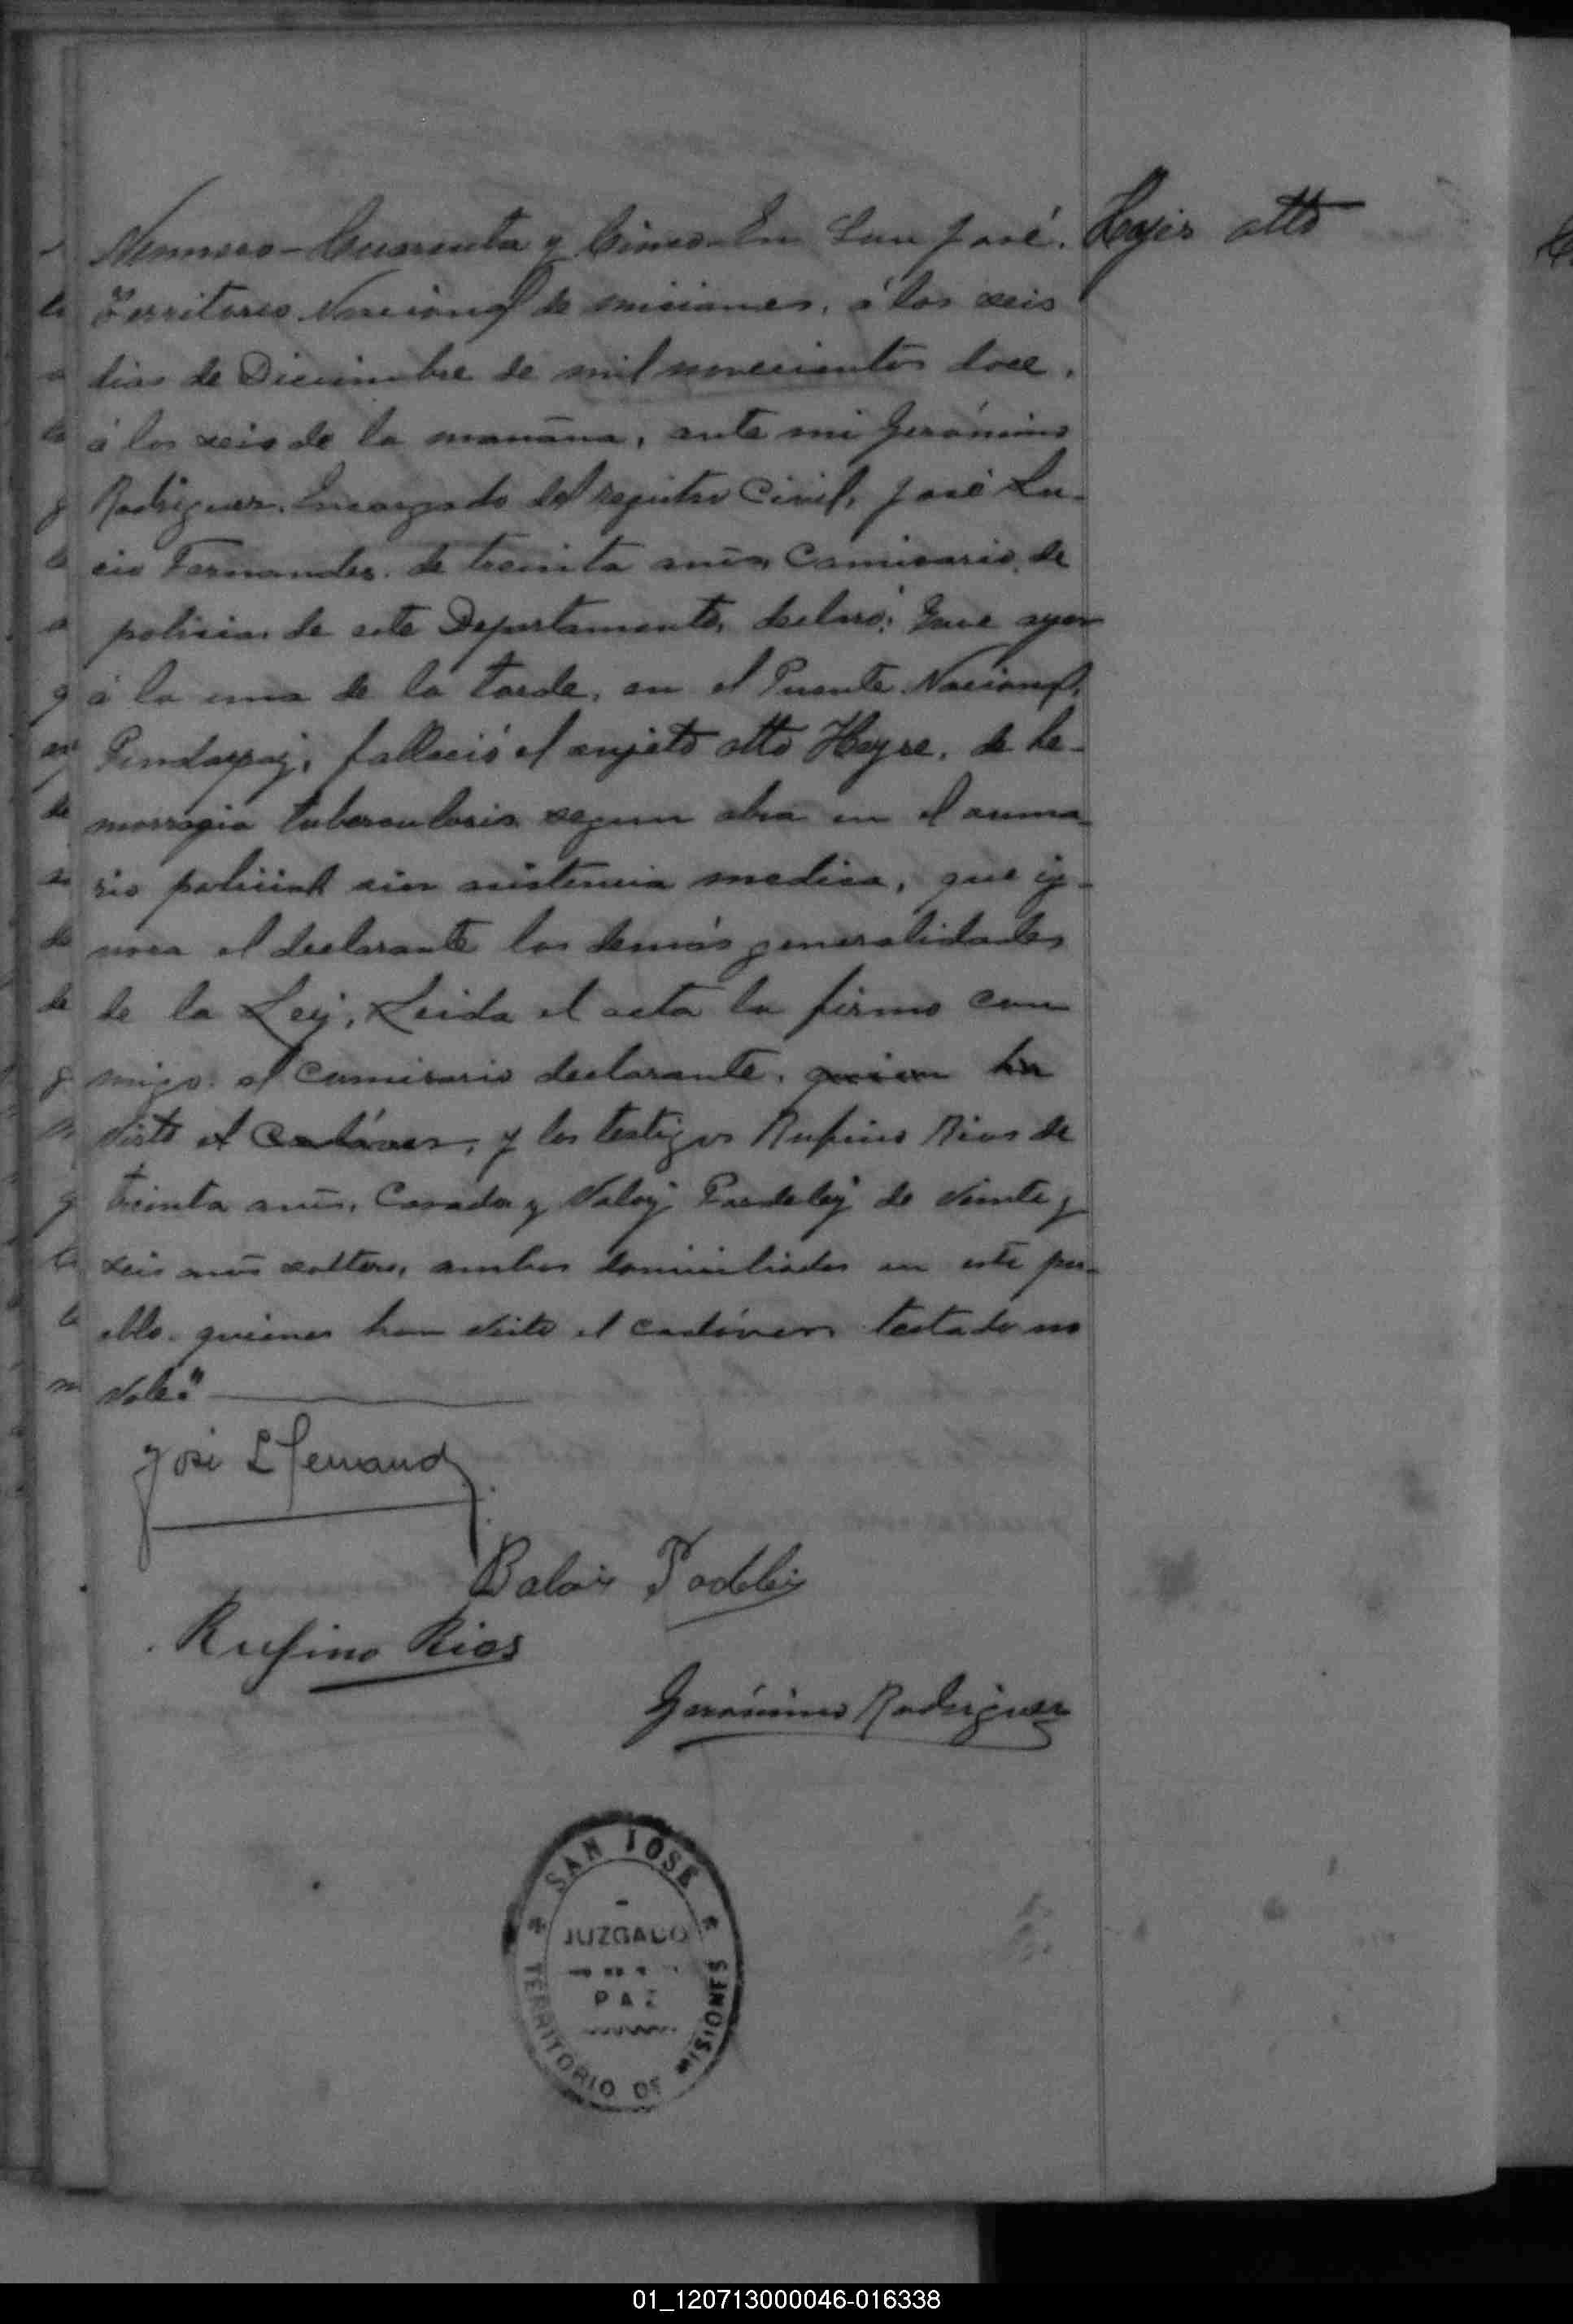 Numero-Cuarenta y Cinco-En San José.
Heyer otto
Territorio Nacional de misiones, á los seis
dias de Diciembre de mil novecientos doce,
á las seis de la mañana, ante mi Gerónimo
Rodriguez, Encargado del registro Civil, José Lu-
cio Fernandez, de treinta años, Comisario de
policia de este Departamento, declaró: Que ayer
á la una de la tarde, en el Puente Nacional,
Pindapoy, falleció el sujeto otto Heyse, de he-
morragia tuberculosis segun obra en el suma-
rio policial sin asistencia medica, que ig-
nora el declarante las demás generalidades
de la Ley, Leida el acta la firmo con
migo, el Comisario declarante, quien ha
visto el Cadáver, y los testigos Rufino Rios de
treinta años, Casado y Valoy Pardeley de veinte y
seis años soltero, ambos domiciliados en este pu-
eblo, quienes han visto el cadáver testado no
vale."
José L Fernand
Baloi Podeley
Rufino Rios
Gerónimo Rodriguez
SAN JOSÉ
JUZGADO
PAZ
TERRITORIO DE MISIONES
01_120713000046-016338